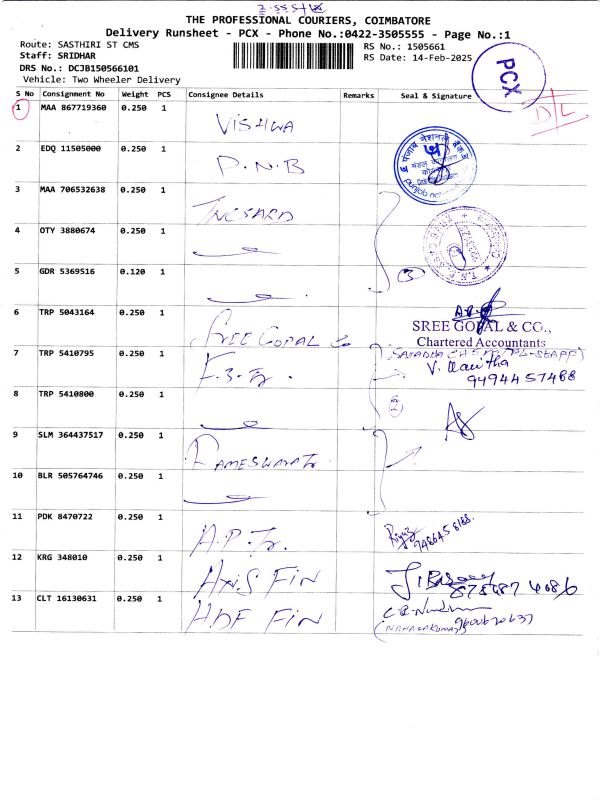 THE PROFESSIONAL COURIERS, COIMBATORE
Delivery Runsheet - PCX - Phone No.:0422-3505555 - Page No.:1
Route: SASTHIRI ST CMS
RS No.: 1505661
Staff: SRIDHAR
RS Date: 14-Feb-2025
DRS No.: DCJB150566101
Vehicle: Two Wheeler Delivery
PCX
D/L
S No Consignment No Weight PCS Consignee Details Remarks Seal & Signature
1 MAA 867719360 0.250 1 VISHWA
2 EDQ 11505000 0.250 1 P.N.B
3 MAA 706532638 0.250 1
4 OTY 3880674 0.250 1
5 GDR 5369516 0.120 1
3
6 TRP 5043164 0.250 1 SREE GOPAL Co
SREE GOPAL & CO.,
Chartered Accountants
7 TRP 5410795 0.250 1
9494457488
8 TRP 5410800 0.250 1
9 SLM 364437517 0.250 1
10 BLR 505764746 0.250 1
11 PDK 8470722 0.250 1 A.P. Tr.
12 KRG 348010 0.250 1 AXIS FIN
13 CLT 16130631 0.250 1 HDF FIN